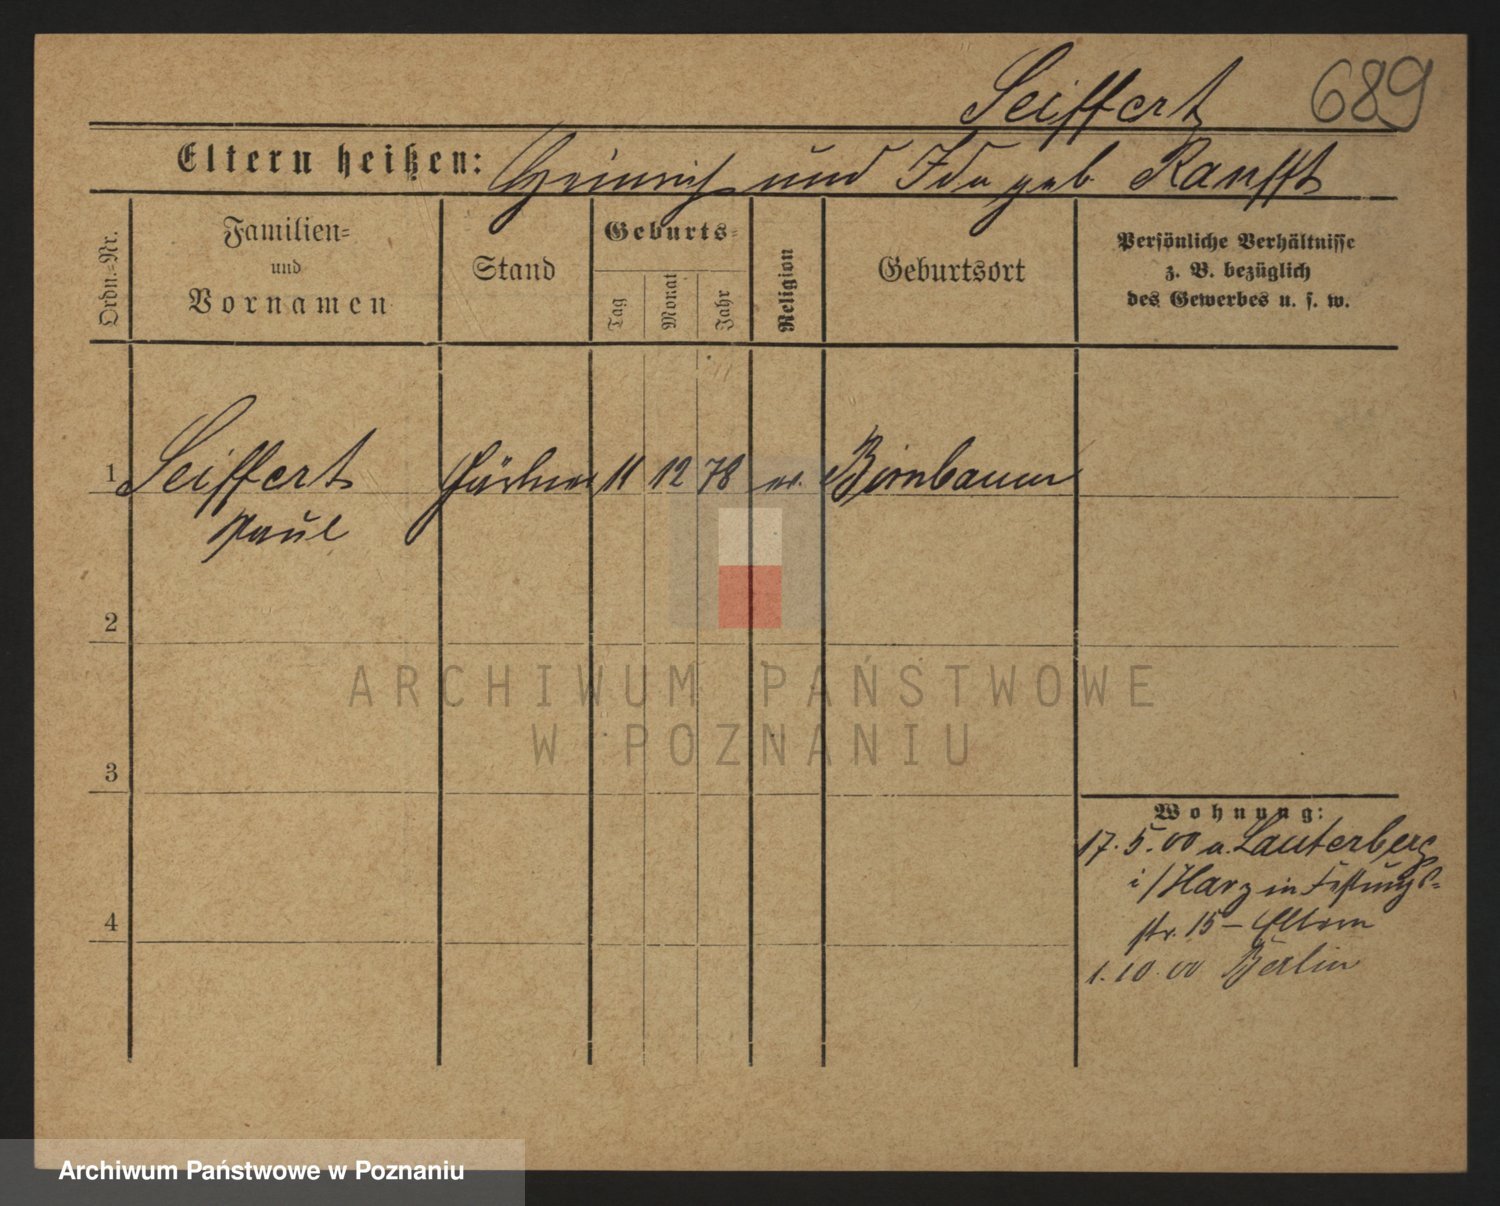 Seiffert 689
Eltern heißen: Heinrich und Ida geb Ranfft
Ordn.-Nr.
Familien-
und
Vornamen
Stand
Geburts-
Tag
Monat
Jahr
Religion
Geburtsort
Persönliche Verhältnisse
z. B. bezüglich
des Gewerbes u. s. w.
1 Seiffert Gärtner 11 12 78 ev. Birnbaum
Paul
2
3
4
Wohnung:
17. 5. 00 a. Lauterberg
i/Harz in Festungs-
str. 15 - Eltern
1. 10. 00 Berlin
ARCHIWUM PAŃSTWOWE
W POZNANIU
Archiwum Państwowe w Poznaniu